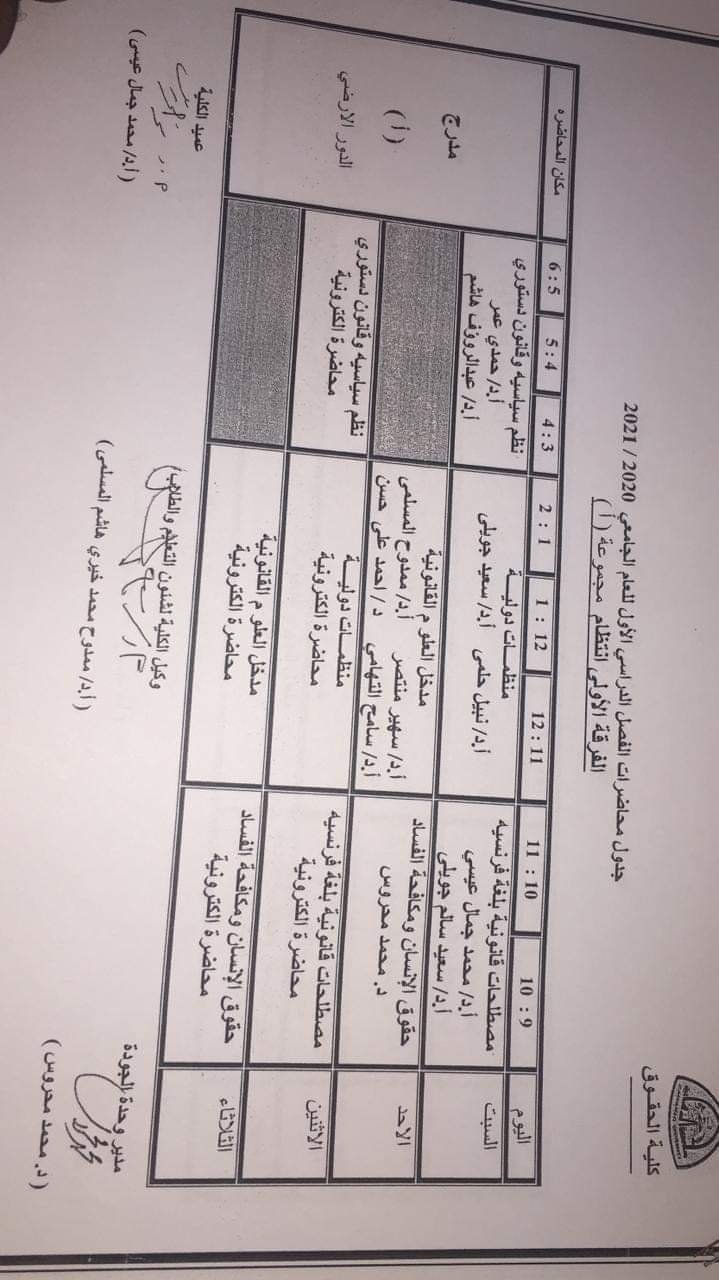 كلية الحقوق
جدول محاضرات الفصل الدراسي الأول للعام الجامعي 2020 / 2021
الفرقة الأولى انتظام مجموعة ( أ )
اليوم 9 : 10 10 : 11 11 : 12 12 : 1 1 : 2 3 : 4 4 : 5 5 : 6 مكان المحاضره
السبت
مصطلحات قانونية بلغة فرنسيه
أ.د/ محمد جمال عيسي
أ.د/ سعيد سالم جويلى
منظمـــات دوليـــة
أ.د/ نبيل حلمى أ.د/ سعيد جويلى
نظم سياسيه وقانون دستوري
أ.د/ حمدي عمر
أ.د/ عبدالرووف هاشم
مدرج
( أ )
الدور الارضي
الاحد
حقوق الإنسان ومكافحة الفساد
د. محمد محروس
مدخل العلو م القانونية
أ.د/ سهير منتصر أ.د/ ممدوح المسلمى
أ.د/ سامح التهامي د/ احمد على حسن
الاثنين
مصطلحات قانونية بلغة فرنسيه
محاضرة الكترونية
منظمـــات دوليـــة
محاضرة الكترونية
نظم سياسيه وقانون دستوري
محاضرة الكترونية
الثلاثاء
حقوق الإنسان ومكافحة الفساد
محاضرة الكترونية
مدخل العلو م القانونية
محاضرة الكترونية
مدير وحدة الجودة
( د. محمد محروس )
وكيل الكلية لشئون التعليم والطلاب
( أ.د/ ممدوح محمد خيري هاشم المسلمى )
عميد الكلية
( أ.د/ محمد جمال عيسى )